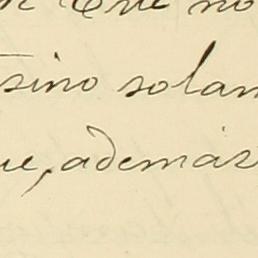 no
sino solam
ue, además